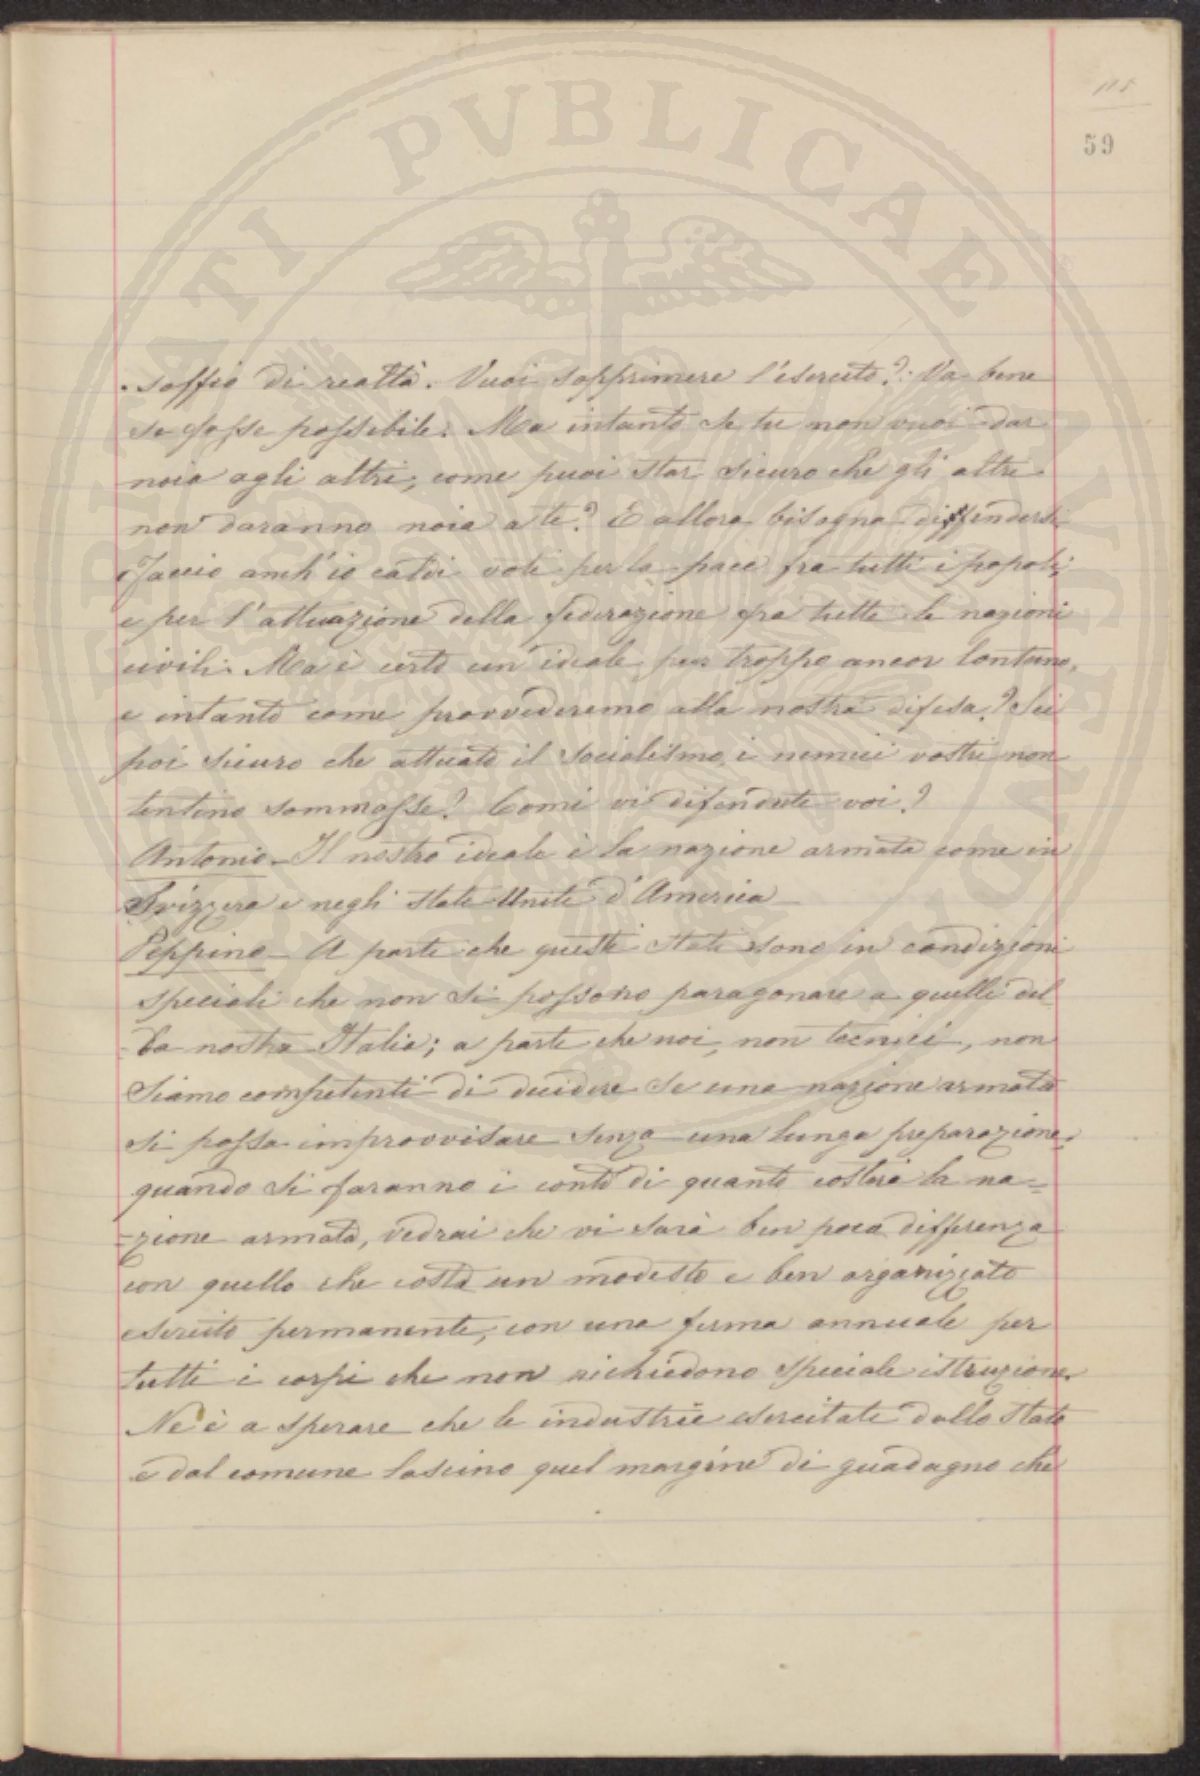 115
59
PRIVATI PUBLICAE
soffio di realtà. Vuoi sopprimere l'esercito? Va bene
se fosse possibile. Ma intanto se tu non vuoi dar
noia agli altri, come puoi star sicuro che gli altri
non daranno noia a te? E allora bisogna diffendersi
Faccio anch'io caldi voti per la pace fra tutti i popoli,
e per l'attuazione della federazione fra tutte le nazioni
civili. Ma è certo un ideale pur troppo ancor lontano,
e intanto come provvederemo alla nostra difesa? Sei
poi sicuro che attuato il socialismo, i nemici vostri non
tentino sommosse? Come vi difendete voi?
Antonio - Il nostro ideale è la nazione armata come in
Svizzera e negli Stati Uniti d'America
Peppino - A parte che questi stati sono in condizioni
speciali che non si possono paragonare a quelli del
la nostra Italia; a parte che noi, non tecnici, non
siamo competenti di decidere se una nazione armata
si possa improvvisare senza una lunga preparazione,
quando si faranno i conti di quanto costerà la na=
=zione armata, vedrai che vi sarà ben poca differenza
con quello che costa un modesto e ben organizzato
esercito permanente, con una ferma annuale per
tutti i corpi che non richiedono speciale istruzione.
Ne è a sperare che le industrie esercitate dallo Stato
e dal comune lascino quel margine di guadagno che